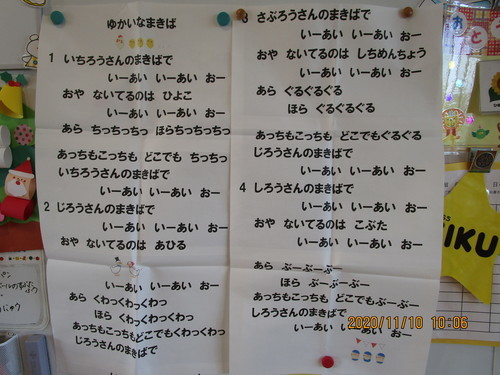 ゆかいなまきば
1 いちろうさんのまきばで
いーあい いーあい おー
おや ないてるのは ひよこ
いーあい いーあい おー
あら ちっちっちっ ほらちっちっちっ
あっちもこっちも どこでも ちっちっ
いちろうさんのまきばで
いーあい いーあい おー
2 じろうさんのまきばで
いーあい いーあい おー
おや ないてるのは あひる
いーあい いーあい おー
あら くわっくわっくわっ
ほら くわっくわっくわっ
あっちもこっちもどこでもくわっくわっ
じろうさんのまきばで
3 さぶろうさんのまきばで
いーあい いーあい おー
おや ないてるのは しちめんちょう
いーあい いーあい おー
あら ぐるぐるぐる
ほら ぐるぐるぐる
あっちもこっちも どこでもぐるぐる
じろうさんのまきばで
いーあい いーあい おー
4 しろうさんのまきばで
いーあい いーあい おー
おや ないてるのは こぶた
いーあい いーあい おー
あら ぶーぶーぶー
ほら ぶーぶーぶー
あっちもこっちも どこでもぶーぶー
しろうさんのまきばで
いーあい いーあい おー
IKU
2020/11/10 10:06